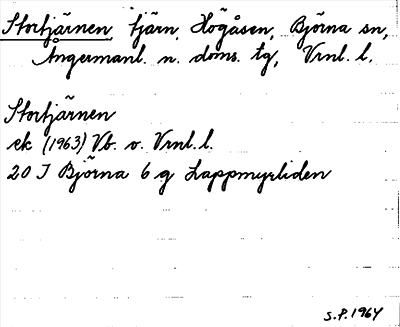 Stortjärnen, tjärn, Högåsen, Björna sn,
Ångermanl. n. doms. tg, Vrnl. l.
Stortjärnen
ek (1963) Vb. o. Vrnl. l.
20 I Björna 6 g Lappmyrliden
S.P. 1964